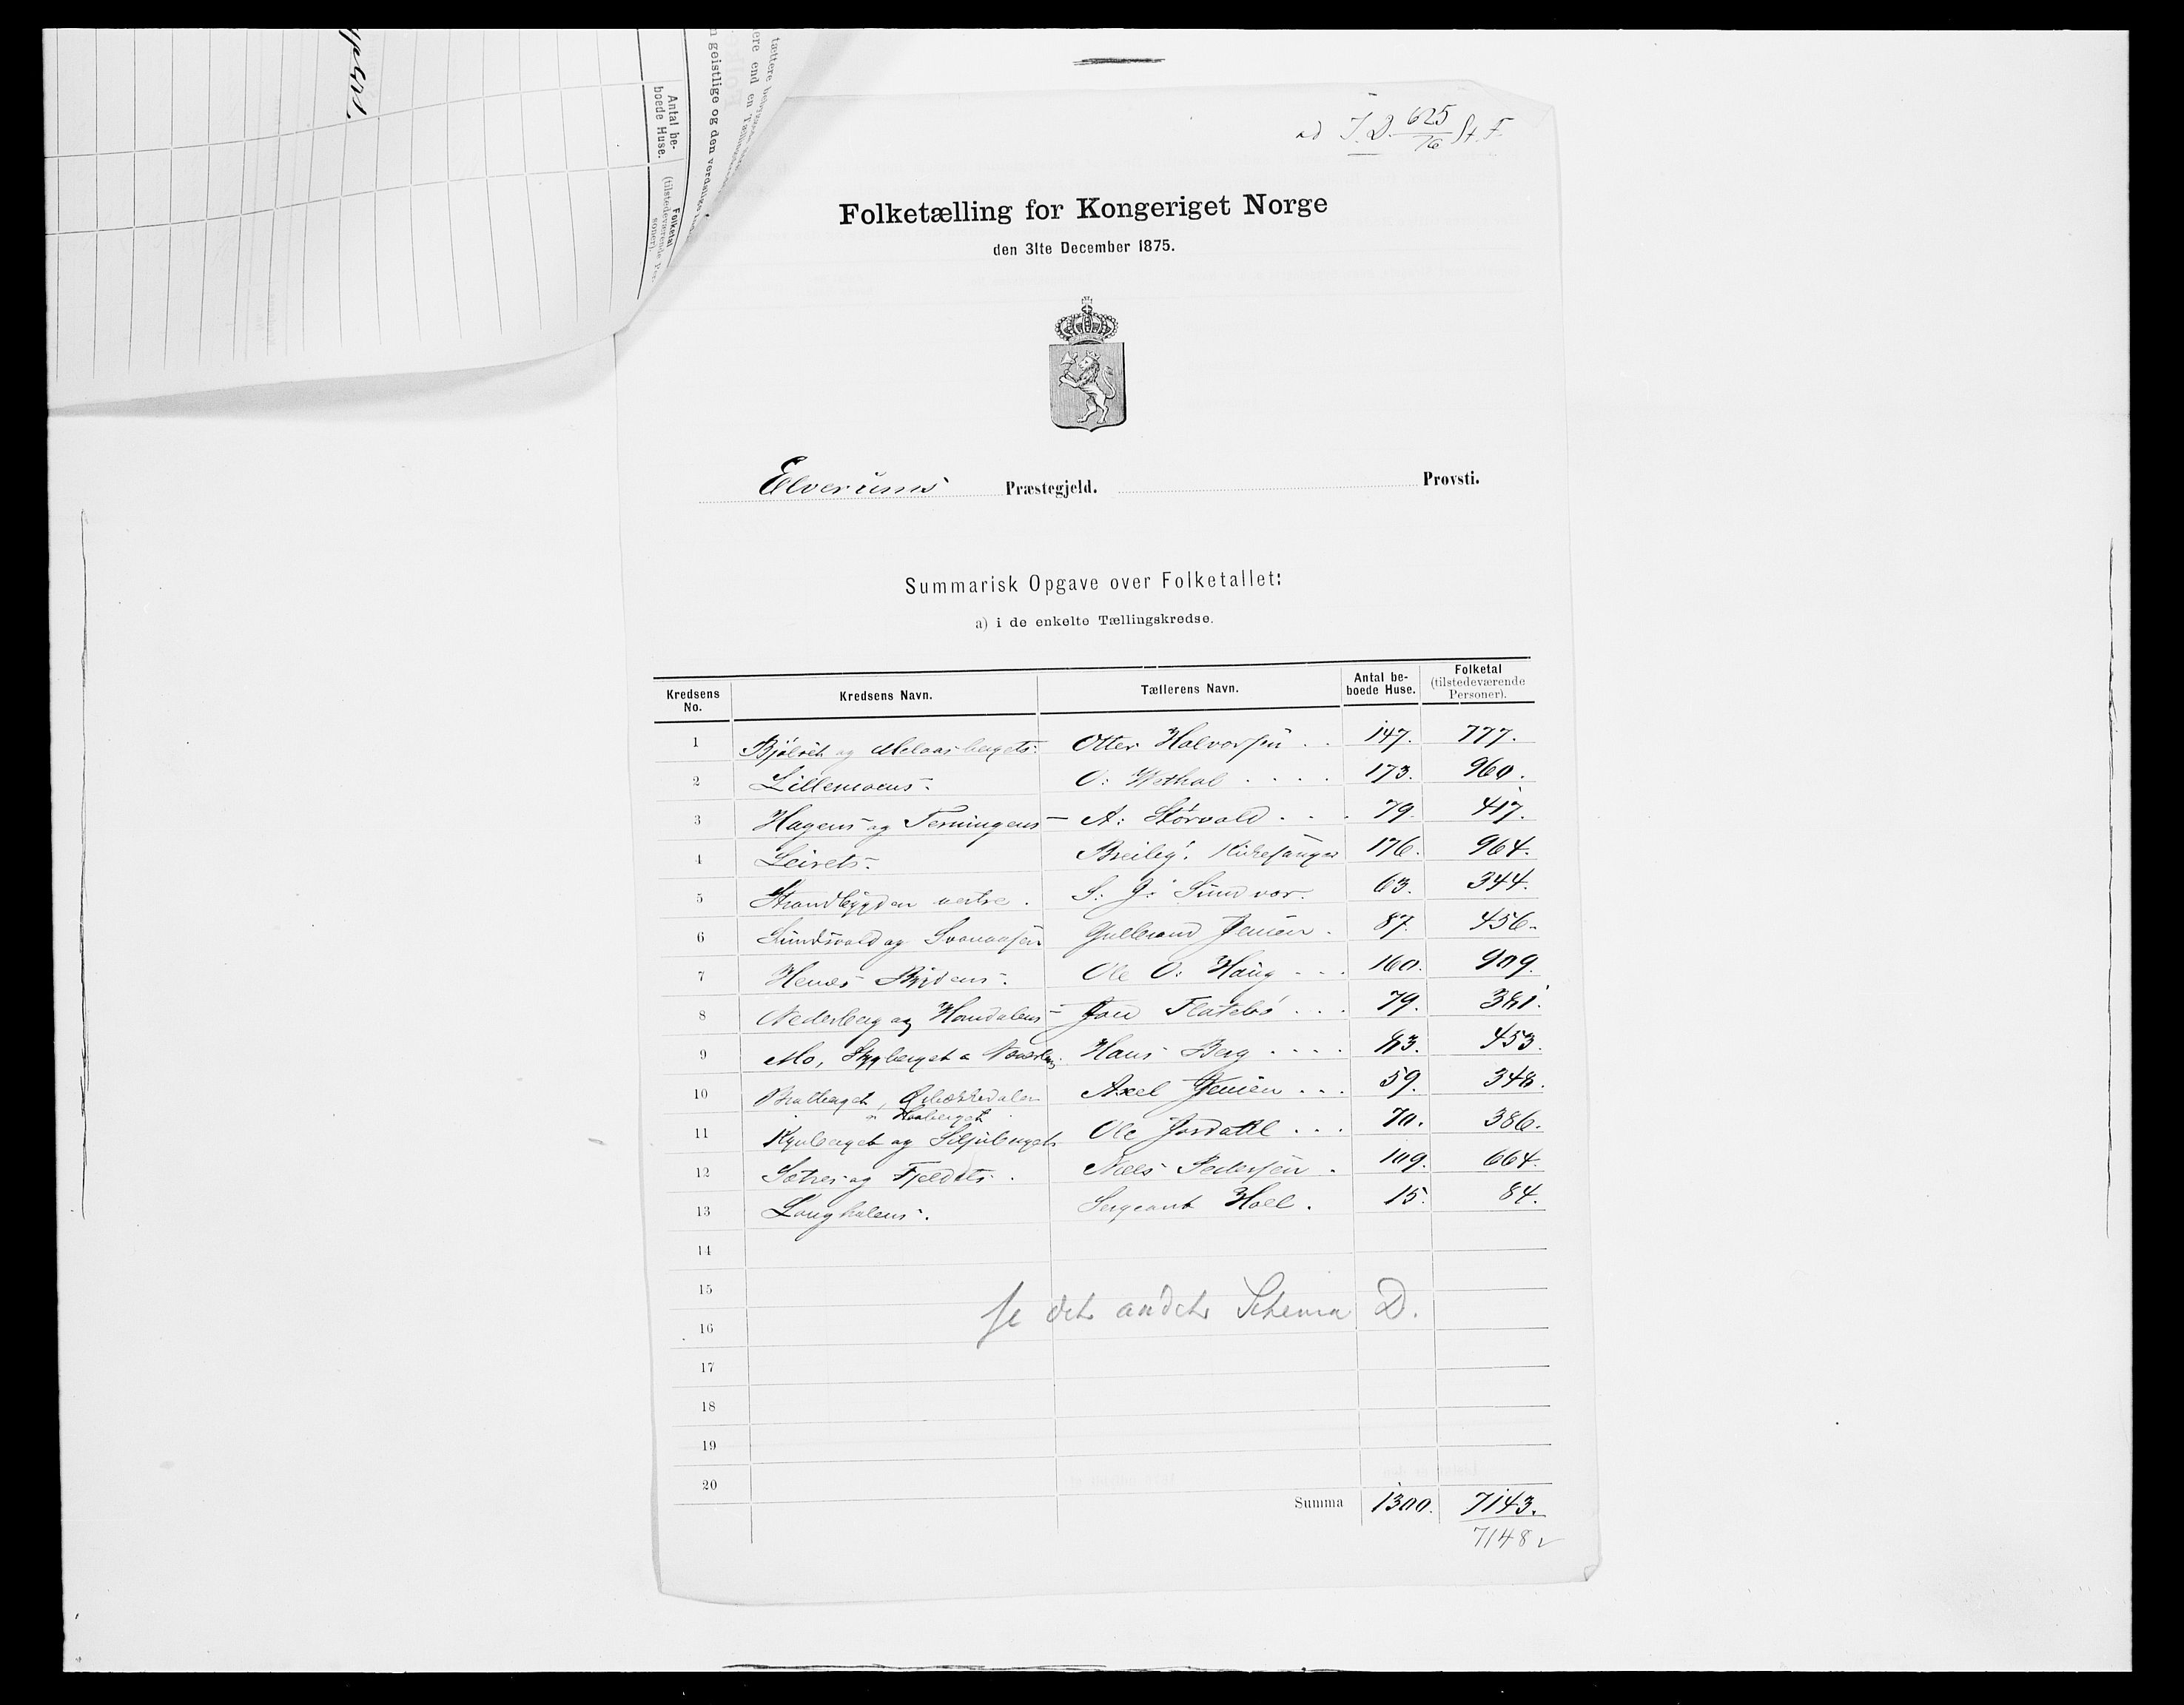 ad J.D. 625/76 St. F.
Folketælling for Kongeriget Norge
den 31te December 1875.
Elverums Præstegjeld. Provsti.
Summarisk Opgave over Folketallet:
a) i de enkelte Tællingskredse.
Kredsens No. Kredsens Navn. Tællerens Navn. Antal beboede Huse. Folketal (tilstedeværende Personer).
1 og Otter Halvorsen . . 147. 777.
2 Lillemoens. O: Wethal . . . . 173. 960.
3 Hagens og Terningens A: Størvold . . . 79. 417.
4 Leirets. Kirkesanger 176. 964.
5 Strandbygden vestre. S: J: Sundvor. 63. 344.
6 og Gulbrand Jensen. 87. 456.
7 Ole O: Haug . . . 160. 909.
8 Nederberg og Flatebø . . . 79. 381.
9 Mo, Hans Berg . . . . 83. 453.
10 Axel Jensen . . . 59. 348.
11 Kynberget og Ole . . . 70. 386.
12 Sætres og Fjeldets. Niels Pedersen. 109. 664.
13 Sergeant Holl. 15. 84.
14
15
se det andet Schema D.
16
17
18
19
20
Summa 1300. 7143.
7148 v
Antal beboede Huse.
Folketal (tilstedeværende Personer).
geistlige og den verdslige
tættere
ere end en